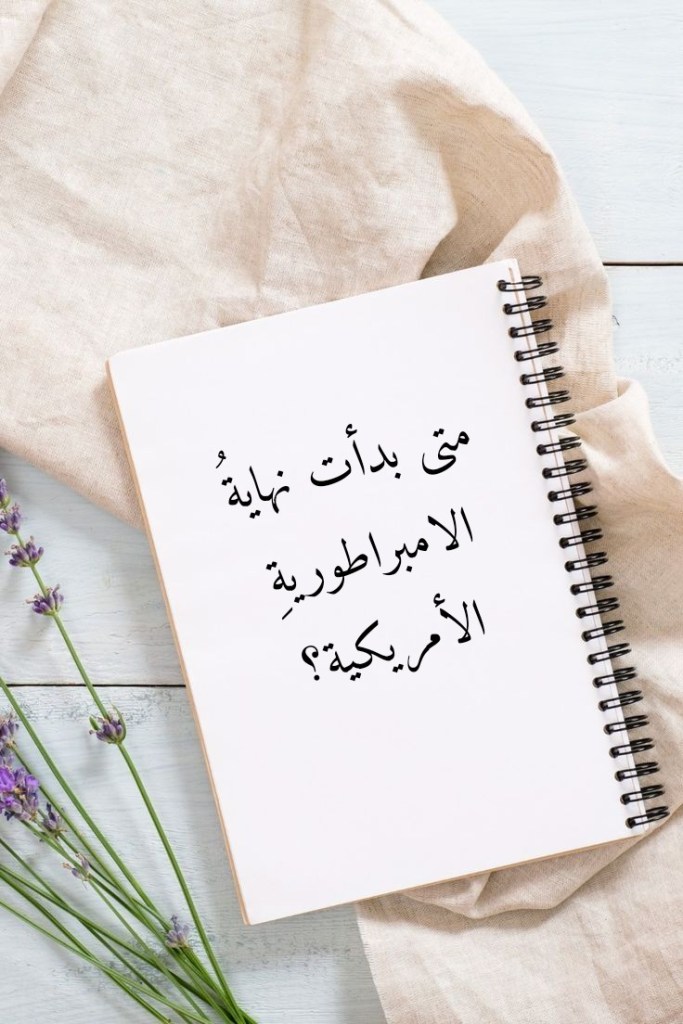 متى بدأت نهايةُ
الامبراطوريةِ
الأمريكية؟